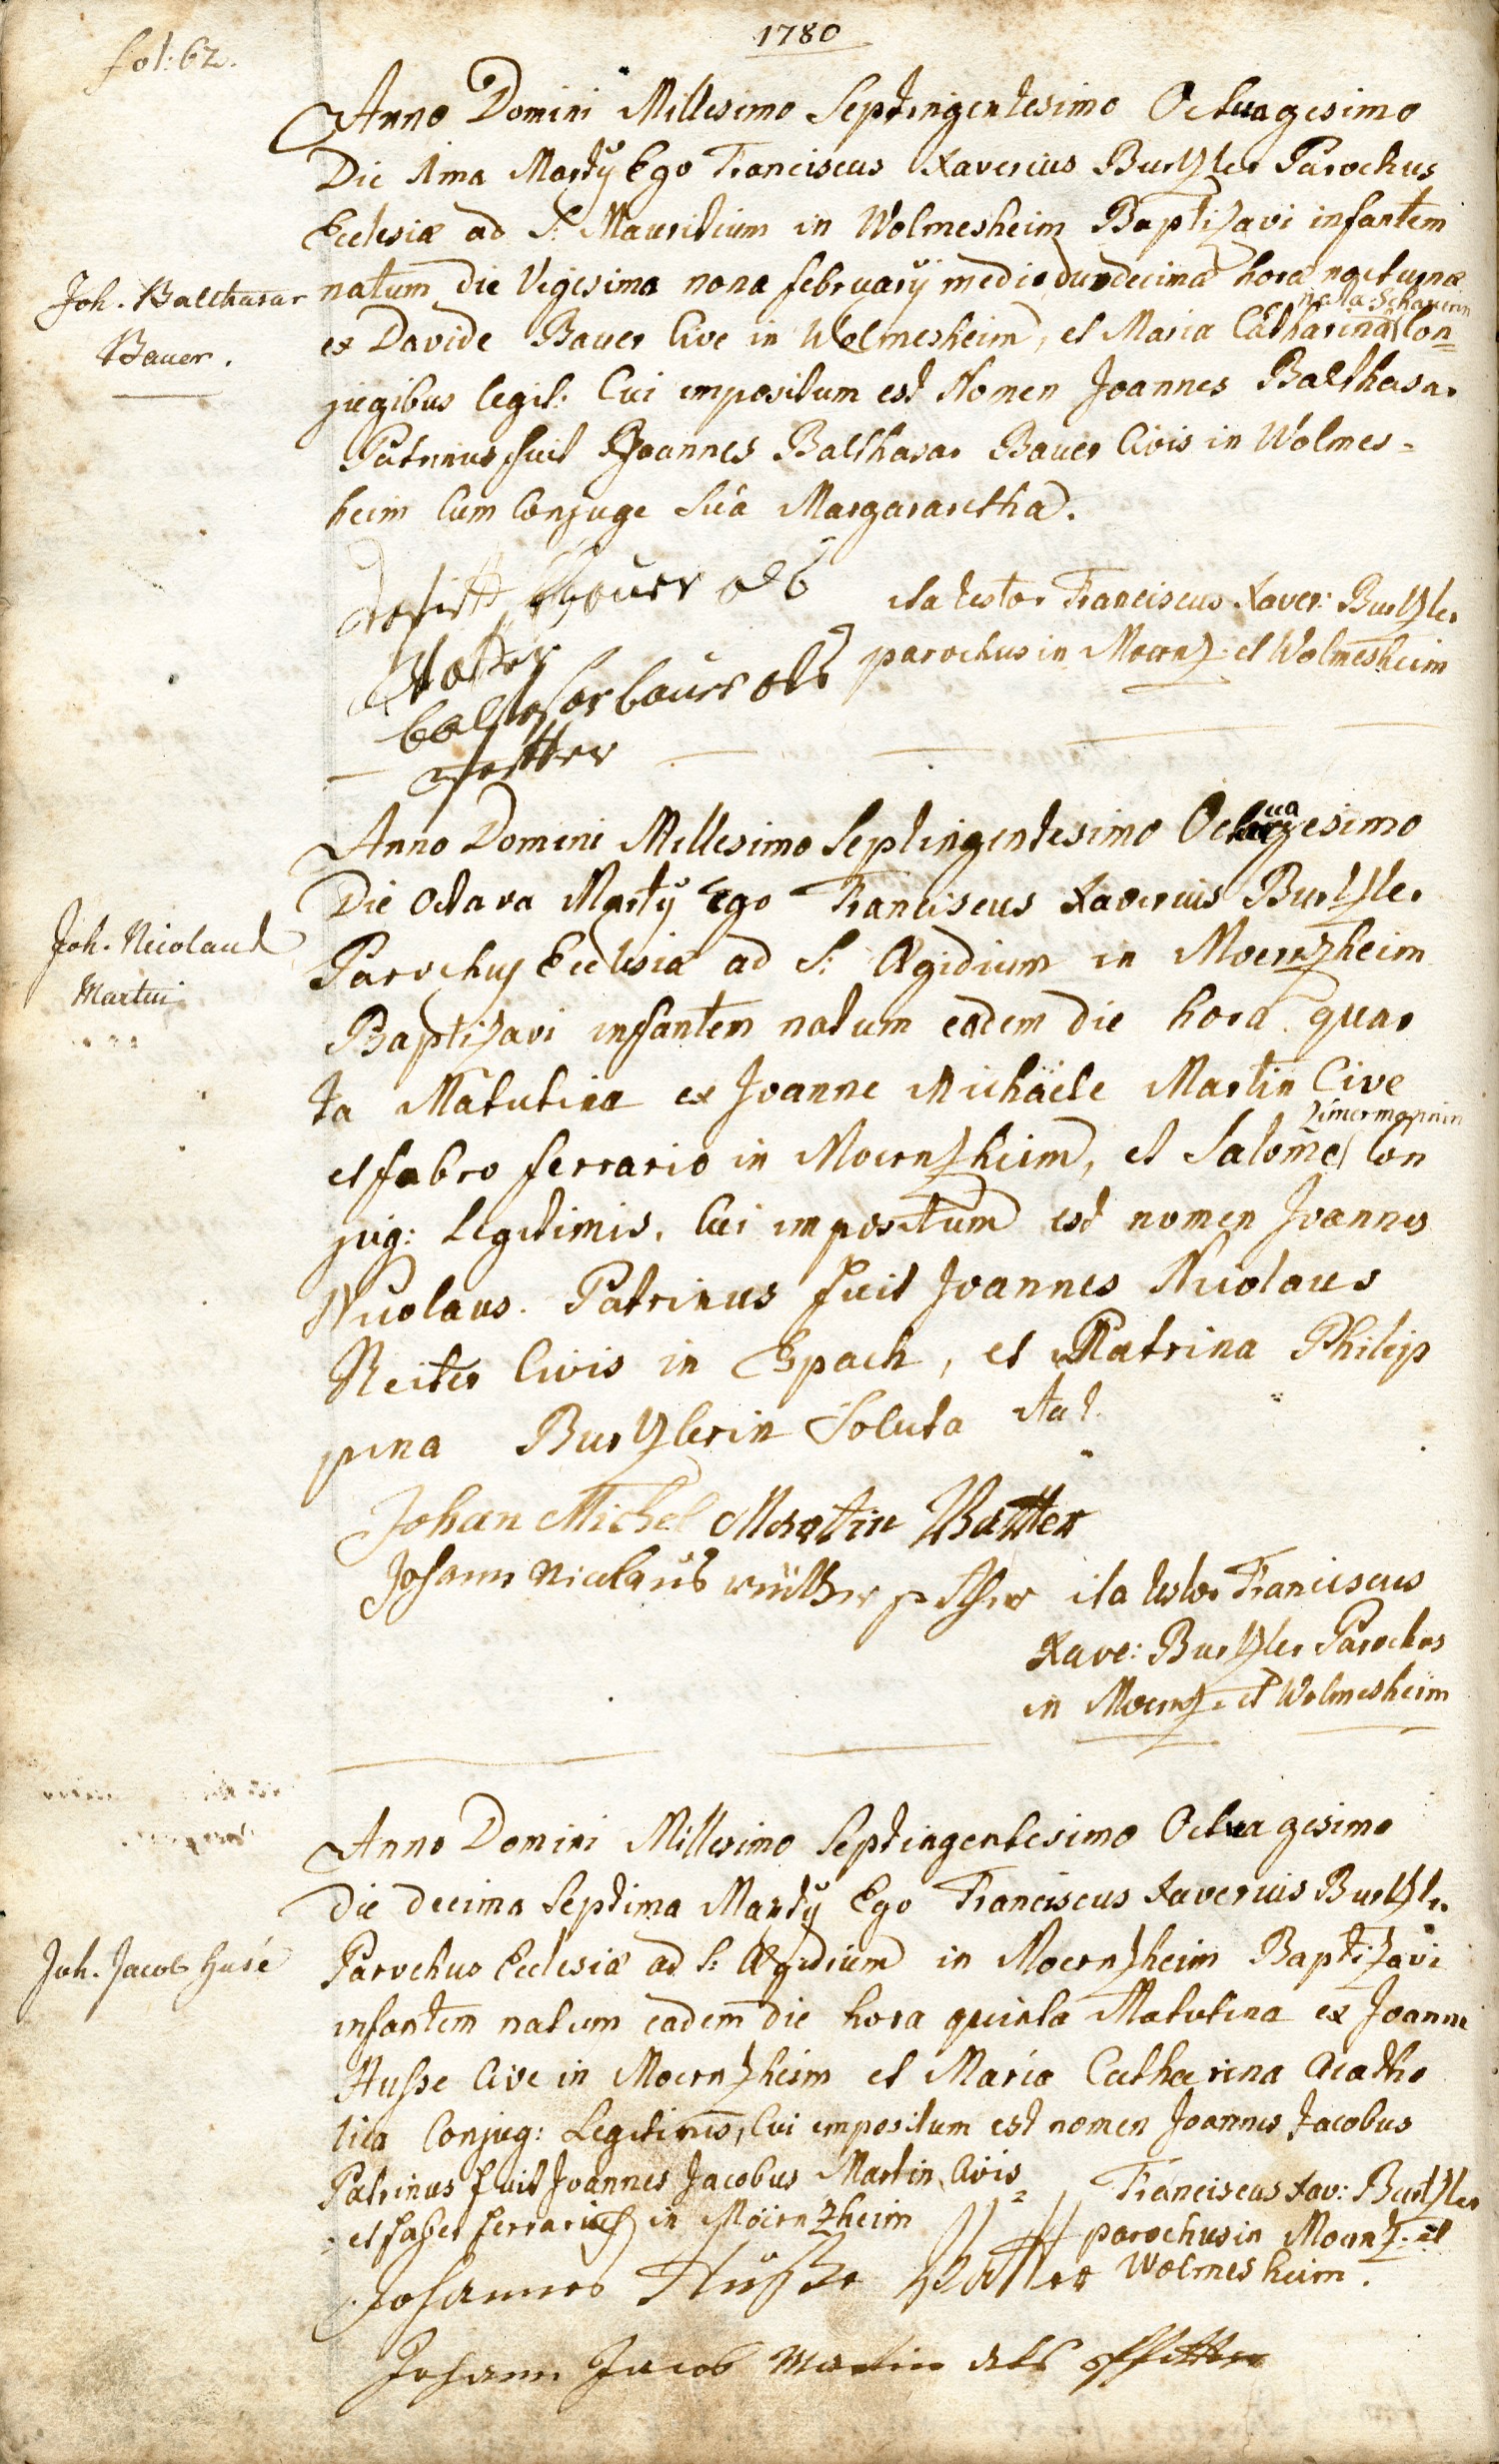 fol: 62.
1780
Anno Domini Millesimo Septingentesimo Octuagesimo
Die 1ma Martÿ Ego Franciscus Xaverius Burtzler Parochus
Eclesiæ ad S: Mauritium in Wolmesheim Baptizavi infantem
Joh. Balthasar
Bauer.
natum die Vigesima nona februarÿ media duodecima hora nocturna
nata: Schauerin
ex Davide Bauer Cive in Wolmesheim, et Maria Catharina Con=
jugibus legit: Cui impositum est Nomen Joannes Balthasar
Patrinus fuit Joannes Balthasar Bauer Civis in Wolmes=
heim Cum Conjuge Sua Margararetha.
bauer als
Vatter
baltasar bauer als
pfetter
ita testor Franciscus Xaver: Burtzler
parochus in Moernz: et Wolmesheim
Anno Domini Millesimo Septingentesimo Octuagesimo
Die Octava Martÿ Ego Franciscus Xaverius Burtzler
Joh. Nicolaus
Martin
Parochus Eclesiæ ad S: Ægidium in Moernzheim
Baptizavi infantem natum eadem die hora quar
ta Matutina ex Joanne Michäele Martin Cive
Zimermannin
et fabro ferrario in Moernzheim, et Salome Con
jug: Legitimis. Cui impositum est nomen Joannes
Nicolaus. Patrinus fuit Joannes Nicolaus
Reiter Civis in Espach, et Matrina Philip
pina Burtzlerin Soluta
Johan Michel Martin Vatter
Johann Nicolaus
ita testor Franciscus
Xave: Burtzler Parochus
in Moernz. et Wolmesheim
Anno Domini Millesimo Septingentesimo Octuagesimo
die decima Septima Martÿ Ego Franciscus Xaverius Burtzler
Joh. Jacob Husé
Parochus Eclesiæ ad S: Ægidium in Moernzheim Baptizavi
infantem natum eadem die hora quinta Matutina ex Joanne
Husse Cive in Moernzheim et Maria Catharina Acatho
lica Conjug: Legitimis, Cui impositum est nomen Joannes Jacobus
Patrinus fuit Joannes Jacobus Martin Civis
et faber ferrarius in Möernzheim
Franciscus Xav: Burtzler
parochus in Moernz: et
Wolmesheim.
Johannes Husse Vatter
Johann Jacob Martin als pfetter